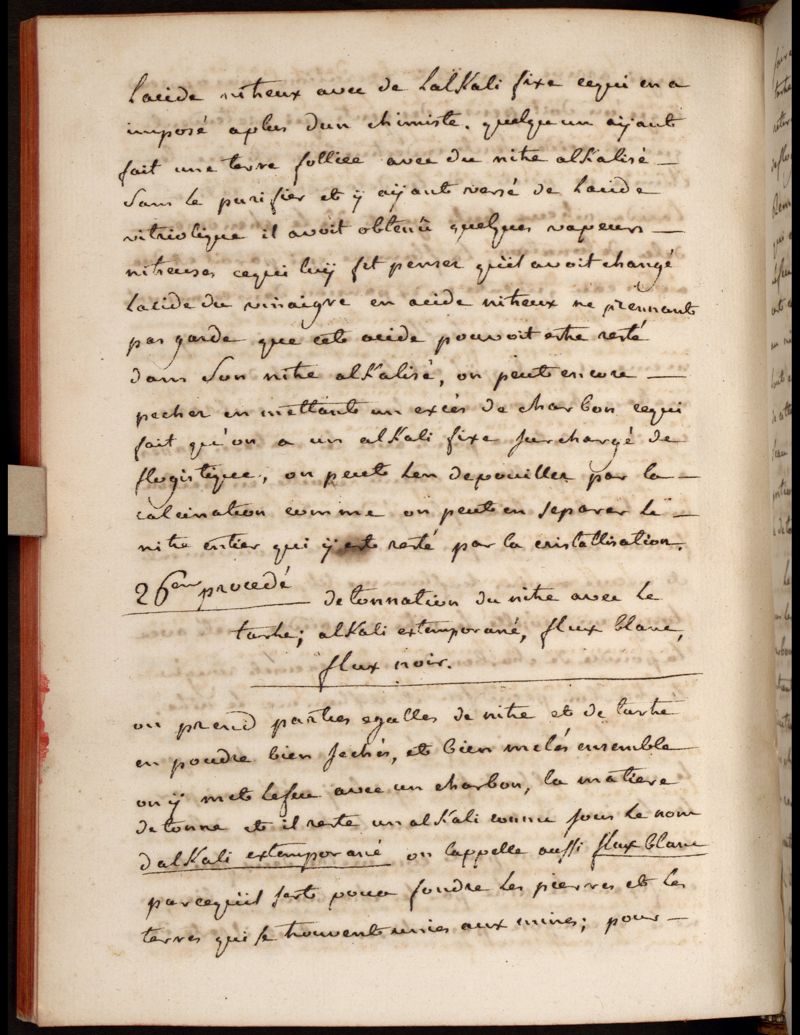 Lacide nitreux avec de Lalkali fixe cequi en a
imposé aplus dun chimiste. quelqu'un aÿant
fait une terre folliée avec du nitre alkalisé —
Sans le purifiér et ÿ aÿant versé de Lacide
vitriolique il avoit obtenû quelques vapeurs —
nitreuses cequi luÿ fit penser quil avoit changé
Lacide du vinaigre en acide nitreux ne prennant
pas garde que cet acide pouvoit estre resté
dans Son nitre alkalisé, on peut encore —
pecher en mettant un excés de charbon cequi
fait qu'on a un alkali fixe surchargé de
flogistique, on peut Len depouiller par la —
calcination comme on peut en separer le —
nitre entier qui ÿ est resté par la cristallisation.
26eme procedé
detonnation du nitre avec Le
tartre; alkali extemporané, flux blanc,
flux noir.
on prend parties egalles de nitre et de tartre
en poudre bien sechés, et bien melés ensemble
on ÿ met lefeu avec un charbon, la matiere
detonne et il reste un alkali connu sous Le nom
dalkali extemporané on lappelle aussi flux blanc
parcequil sert pour fondre Les pierres et les
terres qui se trouvent unies aux mines; pour —